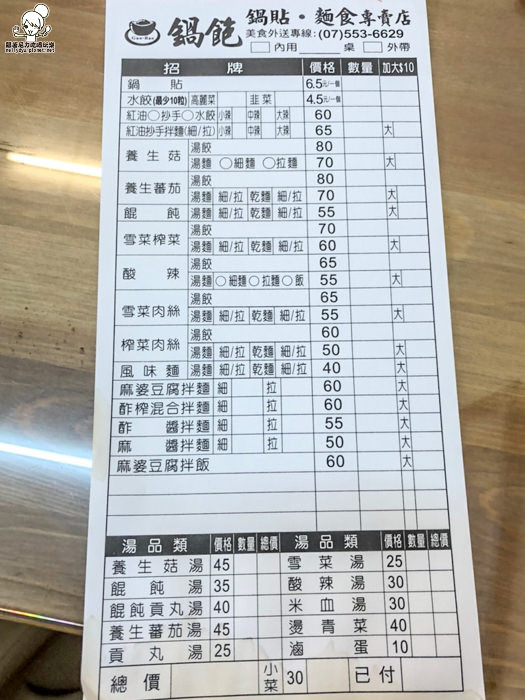 跟著尼力吃喝玩樂
nellydyu.pixnet.net/blog
鍋飽
Guo-Bao
鍋貼・麵食專賣店
美食外送專線:(07)553-6629
□內用____桌 □外帶
招牌 價格 數量 加大$10
鍋貼 6.5元/一個
水餃(最少10粒) 高麗菜 韭菜 4.5元/一個
紅油○抄手○水餃 小辣 中辣 大辣 60
紅油抄手拌麵(細/拉) 小辣 中辣 大辣 65 大
養生菇 湯餃 80
湯麵 ○細麵 ○拉麵 70 大
養生蕃茄 湯餃 80
湯麵 細/拉 乾麵 細/拉 70 大
餛飩 湯麵 細/拉 乾麵 細/拉 55 大
雪菜榨菜 湯餃 70
湯麵 細/拉 乾麵 細/拉 60 大
酸辣 湯餃 65
湯麵○細麵○拉麵○飯 55 大
雪菜肉絲 湯餃 65
湯麵 細/拉 乾麵 細/拉 55 大
榨菜肉絲 湯餃 60
湯麵 細/拉 乾麵 細/拉 50 大
風味麵 湯麵 細/拉 乾麵 細/拉 40 大
麻婆豆腐拌麵 細 拉 60 大
酢榨混合拌麵 細 拉 60 大
酢醬拌麵 細 拉 55 大
麻醬拌麵 細 拉 50 大
麻婆豆腐拌飯 60 大
湯品類 價格 數量 總價 湯品類 價格 數量 總價
養生菇湯 45 雪菜湯 25
餛飩湯 35 酸辣湯 30
餛飩貢丸湯 40 米血湯 30
養生蕃茄湯 45 燙青菜 40
貢丸湯 25 滷蛋 10
總價 小菜 30 已付